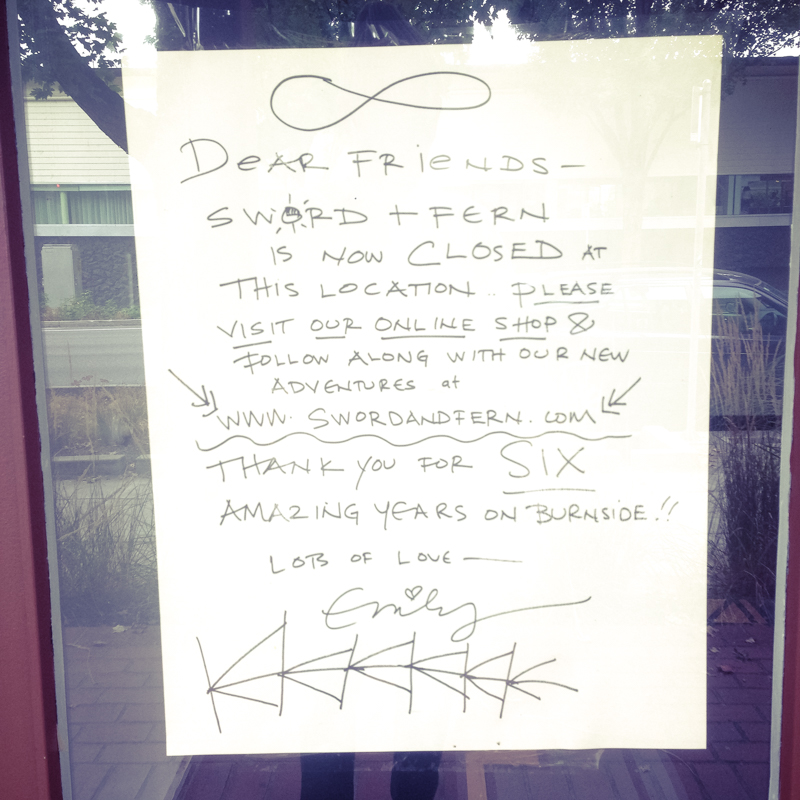 DEAR FRIENDS—
SWORD + FERN
IS NOW CLOSED AT
THIS LOCATION.. PLEASE
VISIT OUR ONLINE SHOP &
FOLLOW ALONG WITH OUR NEW
ADVENTURES at
WWW. SWORDANDFERN.COM
THANK YOU FOR SIX
AMAZING YEARS ON BURNSIDE!!
LOTS OF LOVE—
Emily